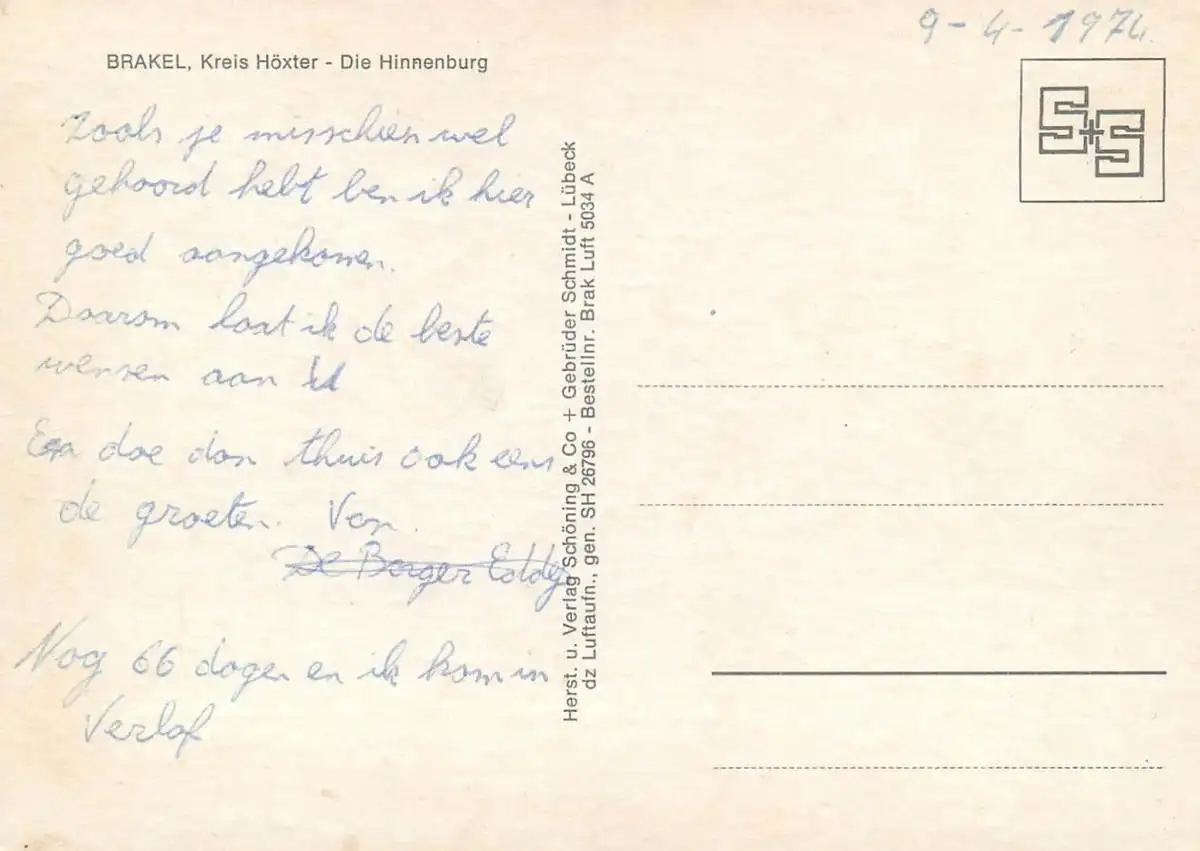 9-4-1974.
BRAKEL, Kreis Höxter - Die Hinnenburg
S+S
Zoals je misschien wel
gehoord hebt ben ik hier
goed aangekomen.
Daarom laat ik de beste
wensen aan U
En doe dan thuis ook eens
de groeten. Van
De Berger Eddy
Nog 66 dagen en ik kom in
Verlof
Herst. u. Verlag Schöning & Co + Gebrüder Schmidt - Lübeck
dz Luftaufn., gen. SH 26796 - Bestellnr. Brak Luft 5034 A